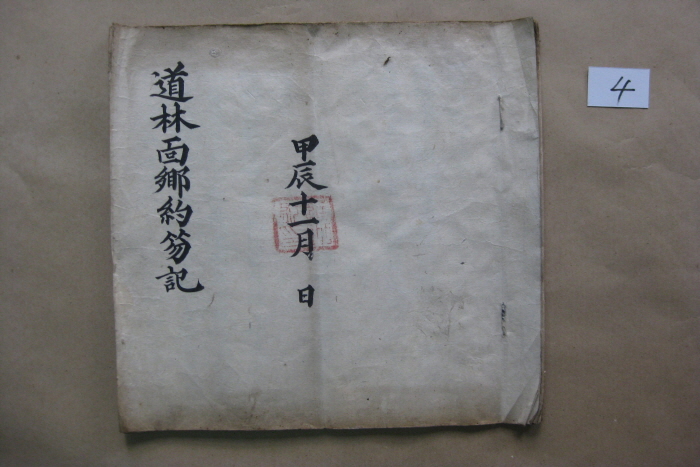 甲辰十一月 日
道林面鄉約笏記
4